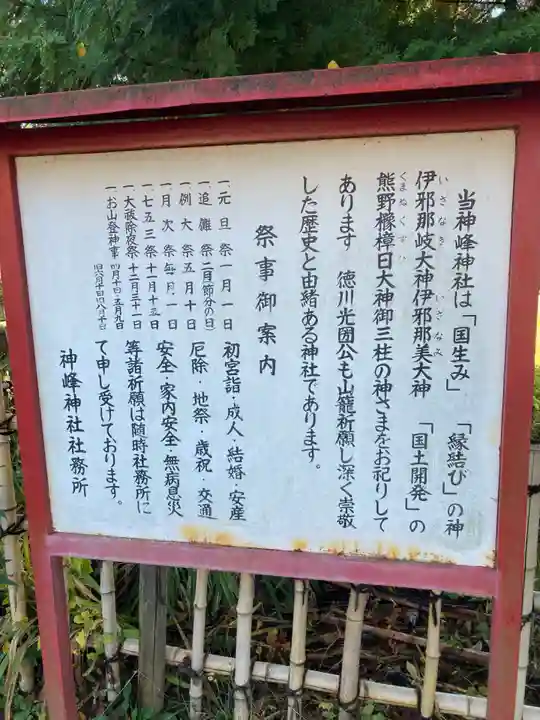 当神峰神社は「国生み」「縁結び」の神
いさなき いさなみ
伊邪那岐大神伊邪那美大神「国土開発」の
くまぬくすひ
熊野樟日大神御三柱の神さまをお祀りして
あります 徳川光圀公も山籠祈願し深く崇敬
した歴史と由緒ある神社であります。
祭事御案内
一元旦祭一月一日
一追儺祭(二月節分の日)
一例大祭五月十日
一月次祭毎月一日
一七五三祭十一月十五日
一大祓除夜祭十二月三十一日
一お山登神事四月十四・五月九日
初宮詣・成人・結婚・安産
厄除・地祭・歳祝・交通
安全・家内安全・無病息災
等諸祈願は随時社務所に
て申し受けております。
神峰神社社務所